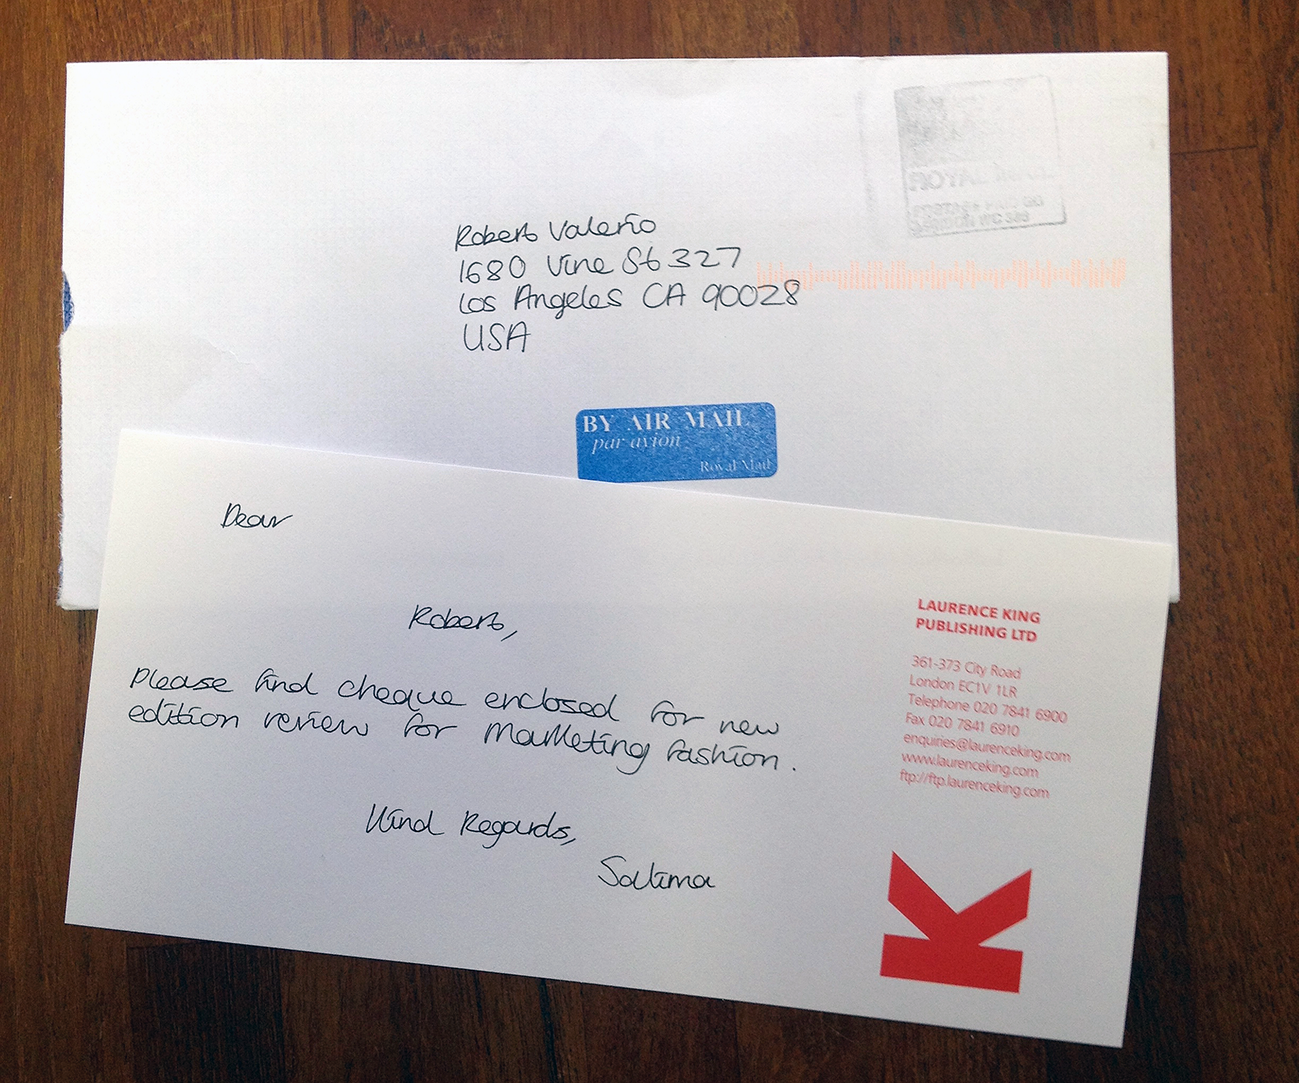 ROYAL MAIL
POSTAGE PAID GB
LONDON WC
Robert Valerio
1680 Vine St 327
Los Angeles CA 90028
USA
BY AIR MAIL
par avion
Royal Mail
Dear
Robert,
Please find cheque enclosed for new
edition review for Marketing Fashion.
Kind Regards,
Salima
LAURENCE KING
PUBLISHING LTD
361-373 City Road
London EC1V 1LR
Telephone 020 7841 6900
Fax 020 7841 6910
enquiries@laurenceking.com
www.laurenceking.com
ftp://ftp.laurenceking.com
K